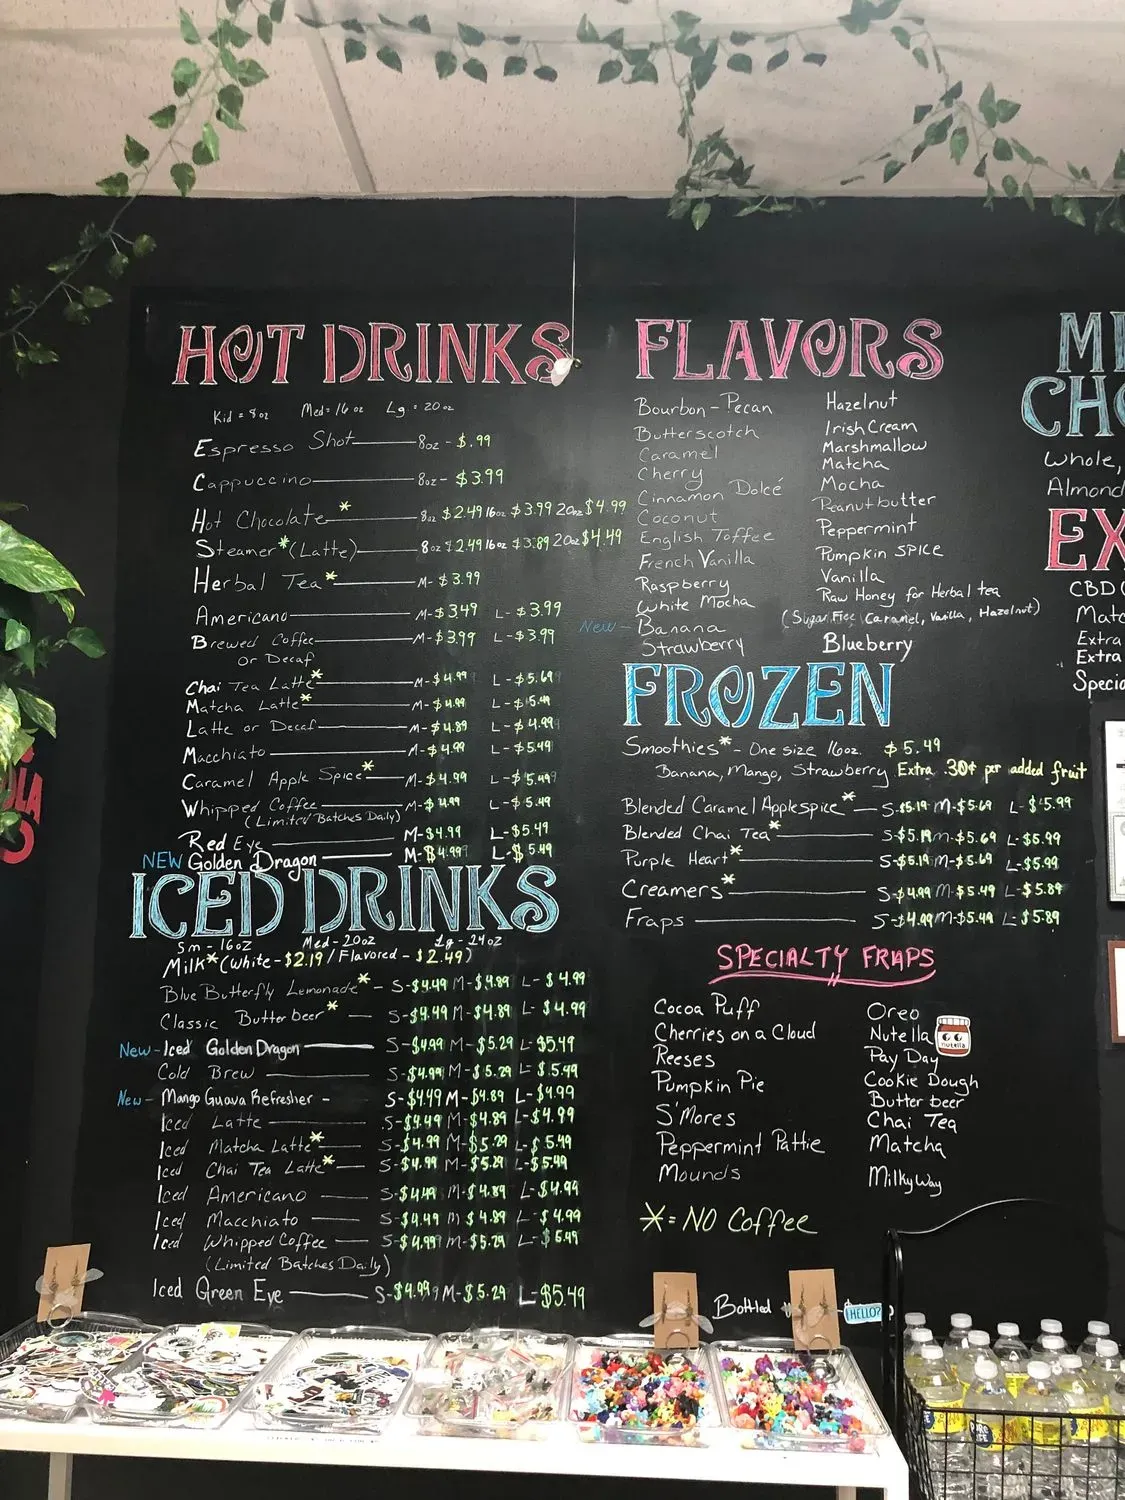 HOT DRINKS
Kid = 8oz Med = 16oz Lg = 20oz
Espresso Shot 8oz - $.99
Cappuccino 8oz - $3.99
Hot Chocolate * 8oz $2.49 16oz $3.99 20oz $4.99
Steamer * (Latte) 8oz $2.49 16oz $3.89 20oz $4.49
Herbal Tea * M- $3.99
Americano M- $3.49 L- $3.99
Brewed Coffee M- $3.99 L- $3.99
or Decaf
Chai Tea Latte * M- $4.99 L- $5.69
Matcha Latte * M- $4.99 L- $5.49
Latte or Decaf M- $4.89 L- $4.99
Macchiato M- $4.99 L- $5.49
Caramel Apple Spice * M- $4.99 L- $5.49
Whipped Coffee M- $4.99 L- $5.49
(Limited Batches Daily)
Red Eye M- $4.99 L- $5.49
NEW Golden Dragon M- $4.99 L- $5.49
ICED DRINKS
Sm - 16oz Med - 20oz Lg - 24oz
Milk * (White - $2.19 / Flavored - $2.49)
Blue Butterfly Lemonade * - S-$4.49 M-$4.89 L-$4.99
Classic Butterbeer * - S-$4.49 M-$4.89 L-$4.99
New - Iced Golden Dragon S-$4.99 M-$5.29 L-$5.49
Cold Brew S-$4.99 M-$5.29 L-$5.49
New - Mango Guava Refresher - S-$4.49 M-$4.89 L-$4.99
Iced Latte S-$4.49 M-$4.89 L-$4.99
Iced Matcha Latte * S-$4.99 M-$5.29 L-$5.49
Iced Chai Tea Latte * S-$4.99 M-$5.29 L-$5.49
Iced Americano S-$4.49 M-$4.89 L-$4.99
Iced Macchiato S-$4.49 M-$4.89 L-$4.99
Iced Whipped Coffee S-$4.99 M-$5.29 L-$5.49
(Limited Batches Daily)
Iced Green Eye S-$4.99 M-$5.29 L-$5.49
FLAVORS
Bourbon-Pecan
Butterscotch
Caramel
Cherry
Cinnamon Dolcé
Coconut
English Toffee
French Vanilla
Raspberry
White Mocha
New - Banana
Strawberry
Hazelnut
Irish Cream
Marshmallow
Matcha
Mocha
Peanutbutter
Peppermint
Pumpkin SPICE
Vanilla
Raw Honey for Herbal tea
(Sugar Free Caramel, Vanilla, Hazelnut)
Blueberry
FROZEN
Smoothies * - One size 16oz. $5.49
Banana, Mango, Strawberry Extra .30¢ per added fruit
Blended Caramel Applespice * S-$5.19 M-$5.69 L-$5.99
Blended Chai Tea * S-$5.19 M-$5.69 L-$5.99
Purple Heart * S-$5.19 M-$5.69 L-$5.99
Creamers * S-$4.99 M-$5.49 L-$5.89
Fraps S-$4.99 M-$5.49 L-$5.89
SPECIALTY FRAPS
Cocoa Puff
Cherries on a Cloud
Reeses
Pumpkin Pie
S'Mores
Peppermint Pattie
Mounds
Oreo
Nutella
nutella
Pay Day
Cookie Dough
Butterbeer
Chai Tea
Matcha
MilkyWay
* = NO Coffee
Bottled
HELLO?
MI
CHO
Whole,
Almond
EX
CBD
Matc
Extra
Extra
Specia